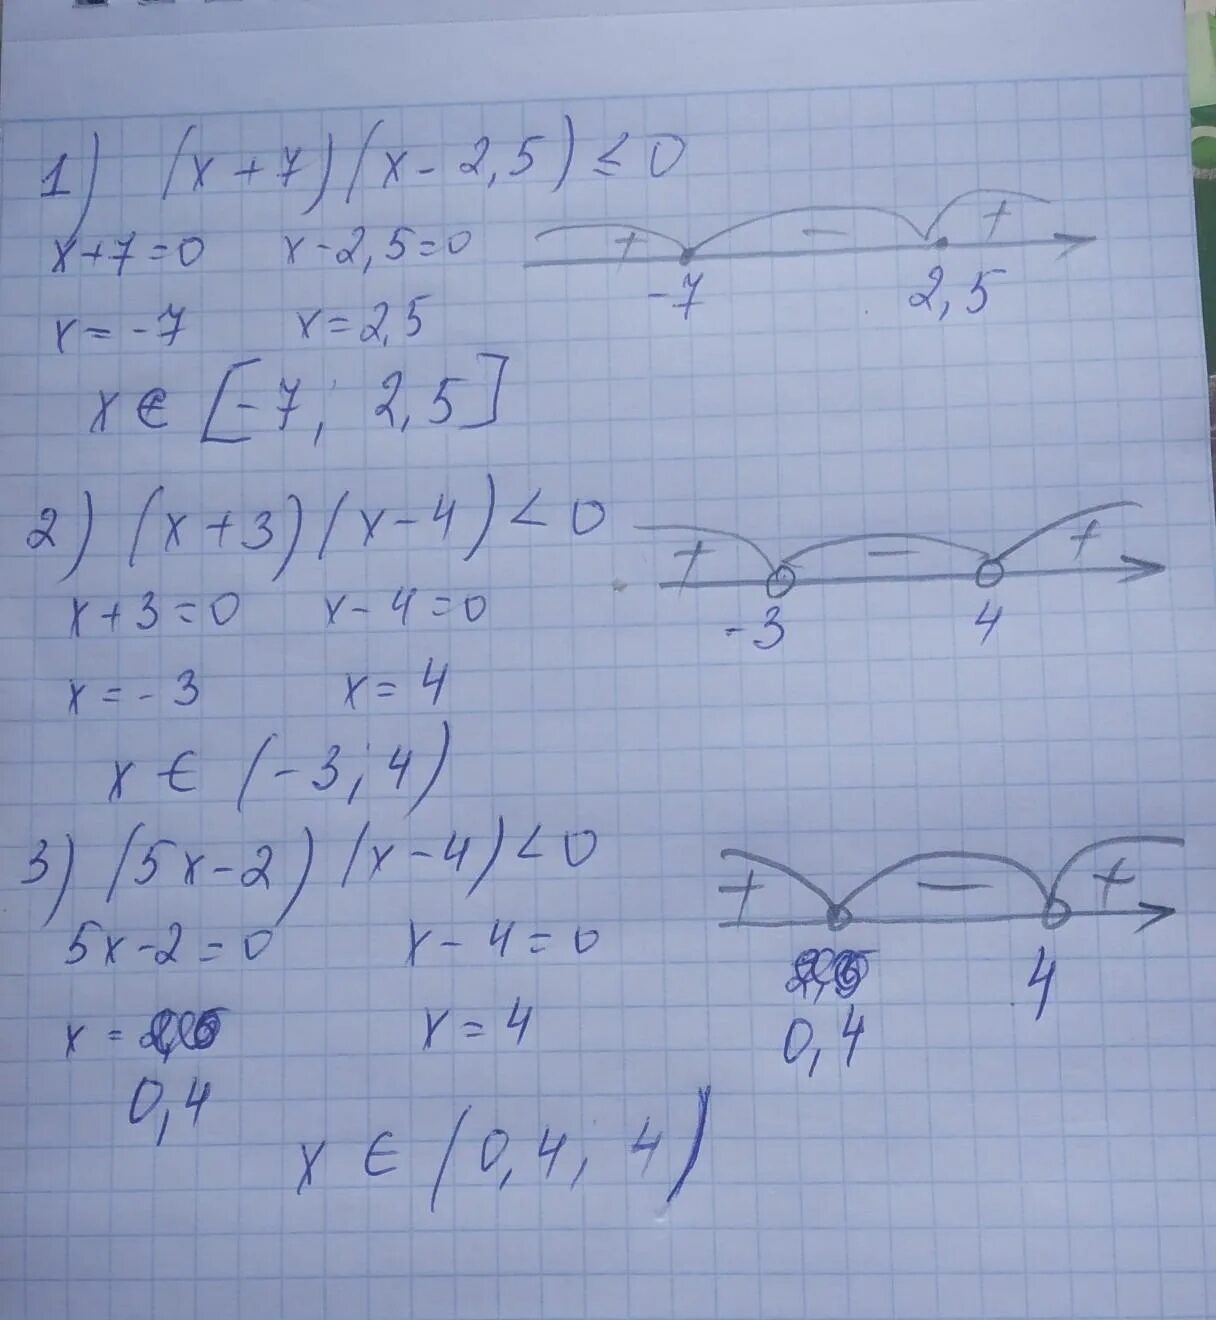 1) (x+7)(x-2,5)≤0
x+7=0 x-2,5=0
+ - +
-7 2,5
x=-7 x=2,5
x∈[-7; 2,5]
2) (x+3)(x-4)<0
+ - +
-3 4
x+3=0 x-4=0
x=-3 x=4
x∈(-3;4)
3) (5x-2)(x-4)<0
+ - +
4
0,4
5x-2=0 x-4=0
x= x=4
0,4
x∈(0,4; 4)